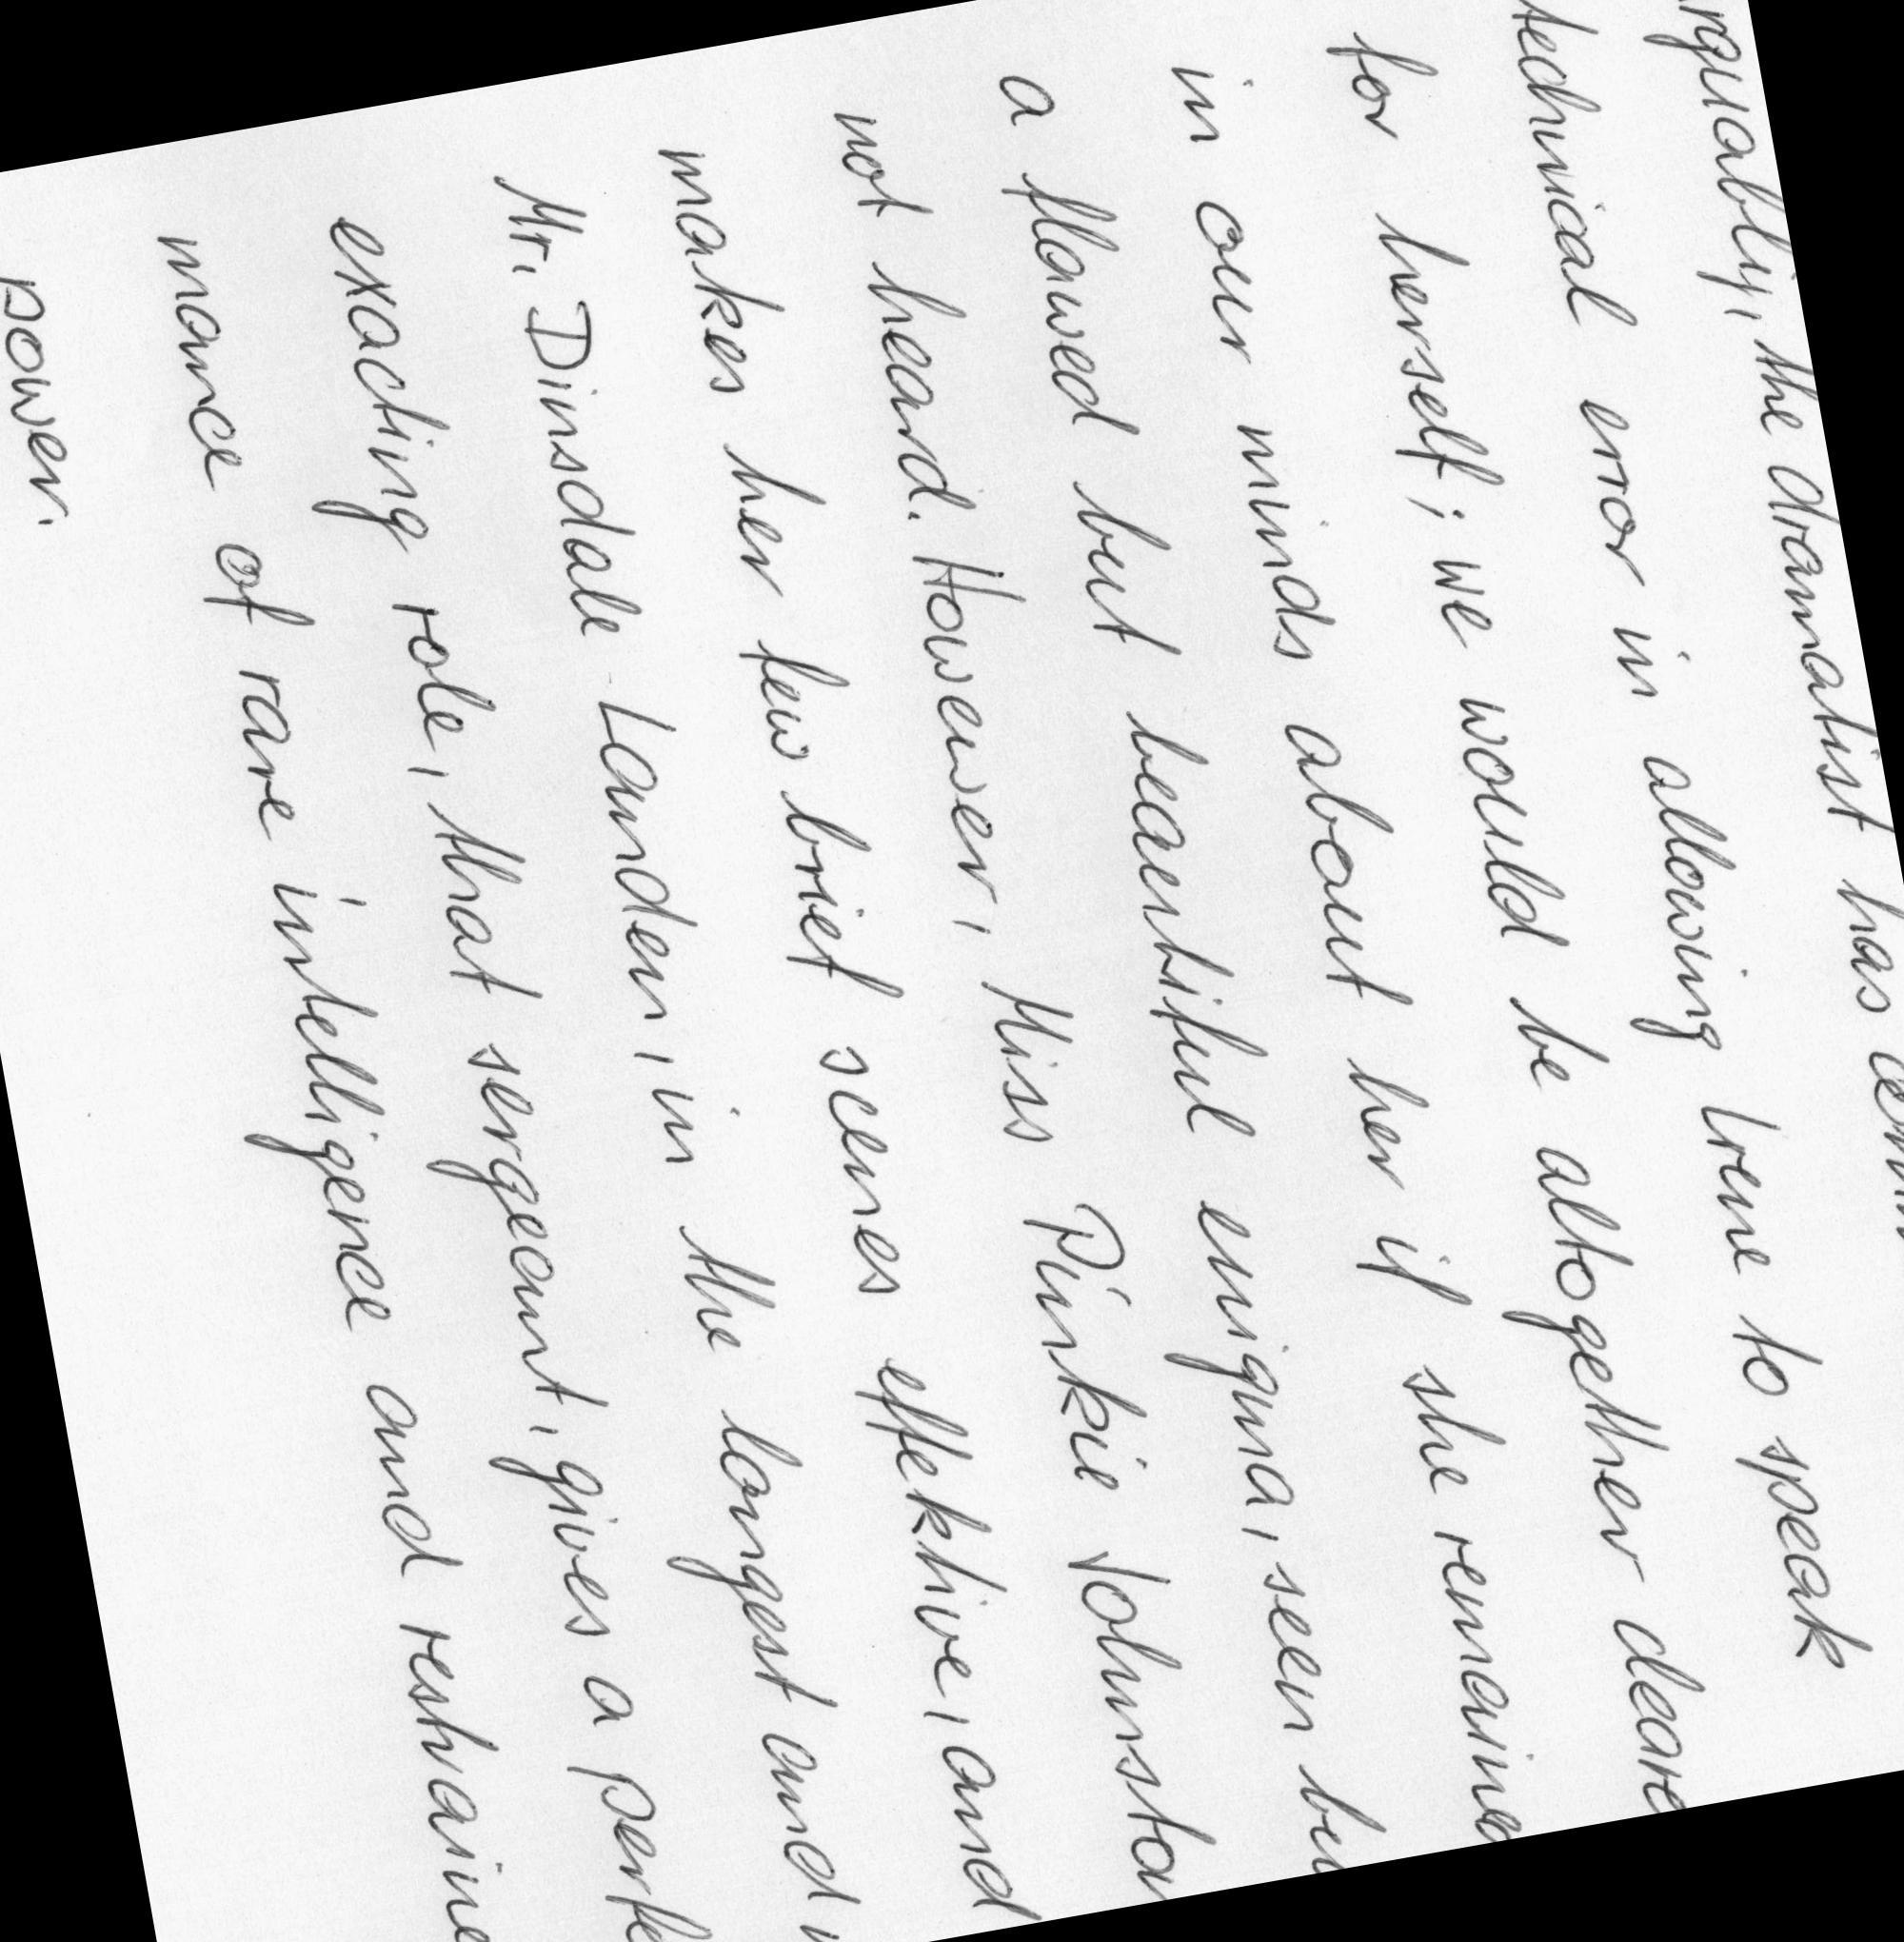 the dramatist has
technical error in allowing Irene to speak
for herself; we would be altogether clearer
in our minds about her if she remained
a flawed but beautiful enigma, seen but
not heard. However, Miss Pinkie Johnston
makes her few brief scenes effektive, and
Mr. Dinsdale Landen, in the longest and
exacting role, that sergeant, gives a
mance of rare intelligence and
power.